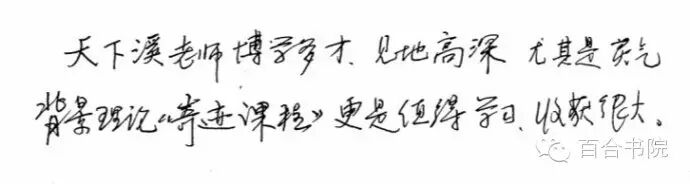 天下溪老师博学多才、见地高深 尤其是灵气
背景理论《奇迹课程》更是值得学习、收获很大。
百合书院